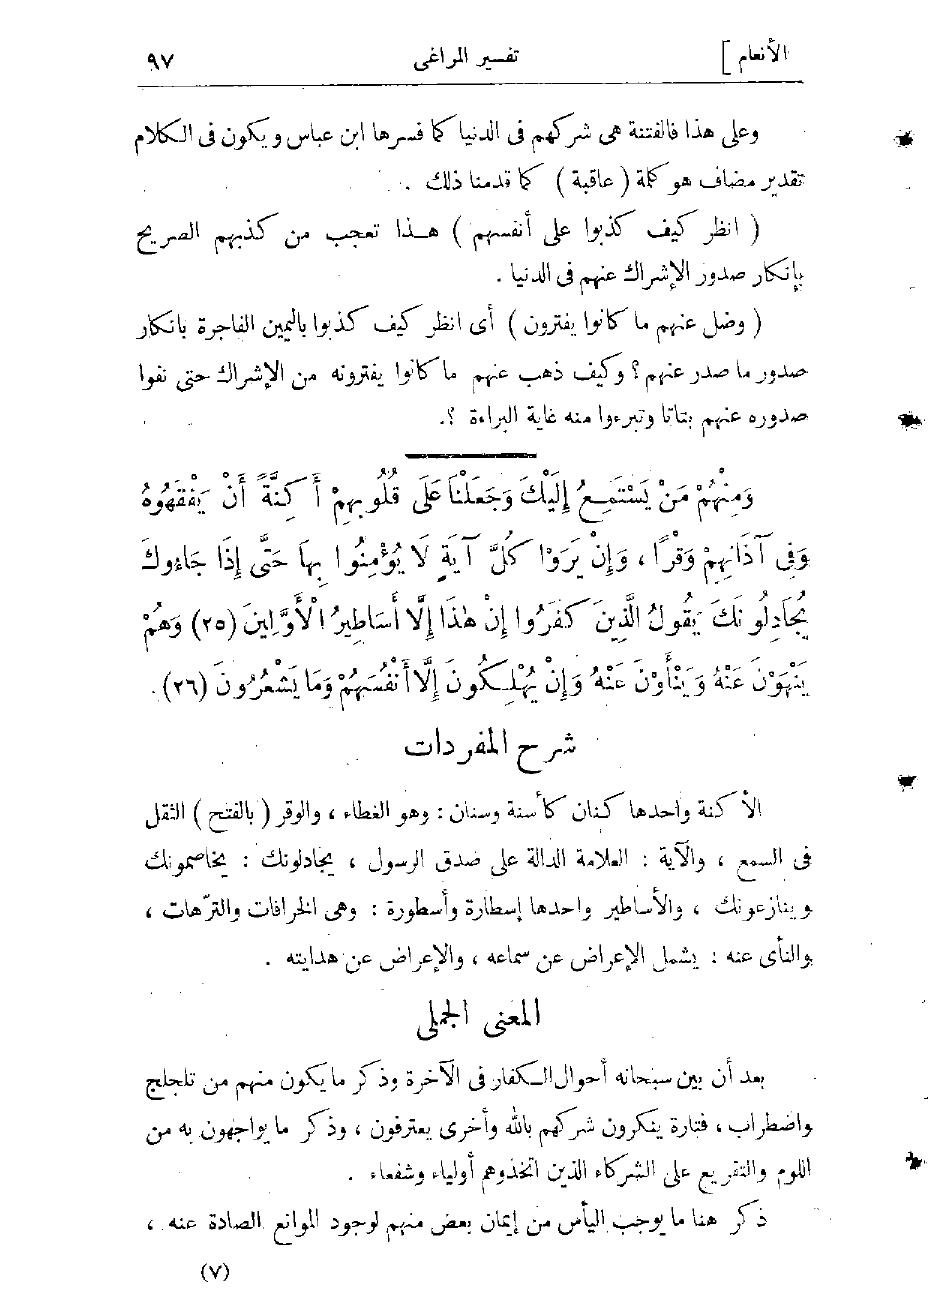 الأنعام ] تفسير المراغى ٩٧
وعلى هذا فالفتنة هى شركهم فى الدنيا كما فسرها ابن عباس ويكون فى الكلام
تقدير مضاف هو كلمة ( عاقبة ) كما قدمنا ذلك .
( انظر كيف كذبوا على أنفسهم ) هذا تعجب من كذبهم الصريح
بإنكار صدور الإشراك عنهم فى الدنيا .
( وضل عنهم ما كانوا يفترون ) أى انظر كيف كذبوا باليمين الفاجرة بانكار
صدور ما صدر عنهم ؟ وكيف ذهب عنهم ما كانوا يفترونه من الإشراك حتى نفوا
صدوره عنهم بتاتا وتبرءوا منه غاية البراءة ؟.
وَمِنْهُمْ مَنْ يَسْتَمِعُ إِلَيْكَ وَجَعَلْنَا عَلَى قُلُوبِهِمْ أَكِنَّةً أَنْ يَفْقَهُوهُ
وَفِى آذَانِهِمْ وَقْرًا ، وَإِنْ يَرَوْا كُلَّ آيَةٍ لَا يُؤْمِنُوا بِهَا حَتَّى إِذَا جَاءُوكَ
يُجَادِلُونَكَ يَقُولُ الَّذِينَ كَفَرُوا إِنْ هٰذَا إِلَّا أَسَاطِيرُ الْأَوَّلِينَ (٢٥) وَهُمْ
يَنْهَوْنَ عَنْهُ وَيَنْأَوْنَ عَنْهُ وَإِنْ يُهْلِكُونَ إِلَّا أَنْفُسَهُمْ وَمَا يَشْعُرُونَ (٢٦) .
شرح المفردات
الأكنة واحدها كنان كأسنة وسنان : وهو الغطاء ، والوقر ( بالفتح ) الثقل
فى السمع ، والآية : العلامة الدالة على صدق الرسول ، يجادلونك : يخاصمونك
وينازعونك ، والأساطير واحدها إسطارة وأسطورة : وهى الخرافات والترّهات ،
والنأى عنه : يشمل الإعراض عن سماعه ، والإعراض عن هدايته .
المعنى الجملى
بعد أن بين سبحانه أحوال الكفار فى الآخرة وذكر ما يكون منهم من تلجلج
واضطراب ، فتارة ينكرون شركهم بالله وأخرى يعترفون ، وذكر ما يواجهون به من
اللوم والتقريع على الشركاء الذين اتخذوهم أولياء وشفعاء .
ذكر هنا ما يوجب اليأس من إيمان بعض منهم لوجود الموانع الصادة عنه ،
(٧)